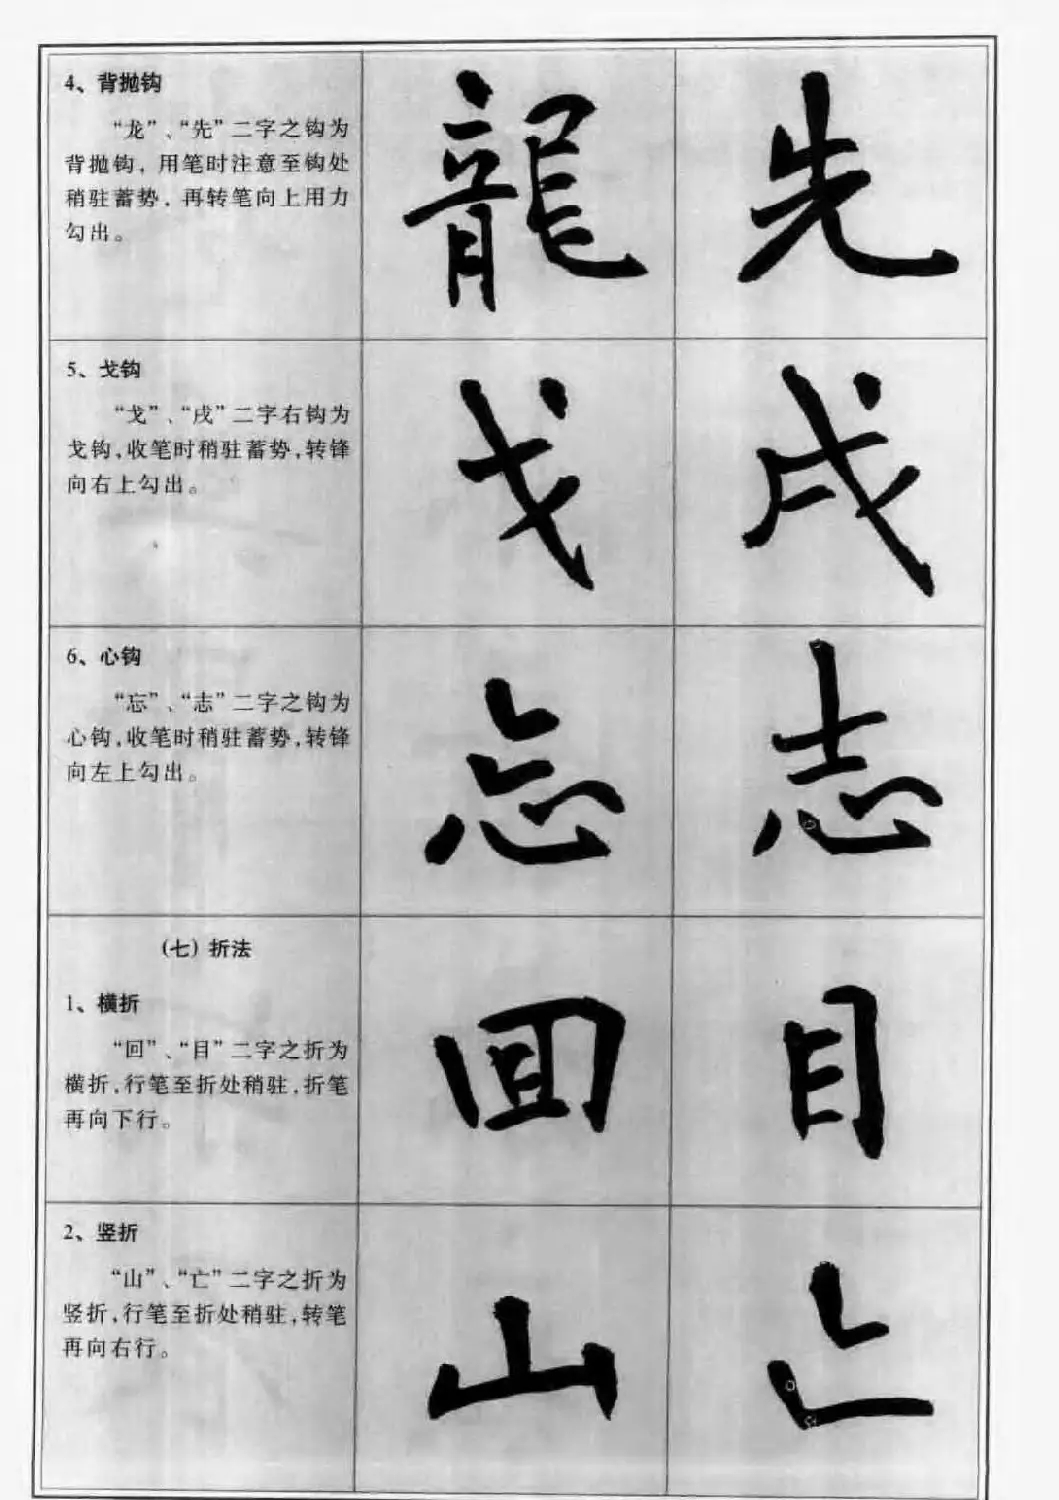 4、背抛钩
“龙”、“先”二字之钩为
背抛钩，用笔时注意至钩处
稍驻蓄势，再转笔向上用力
勾出。
龍
先
5、戈钩
“戈”、“戌”二字右钩为
戈钩，收笔时稍驻蓄势，转锋
向右上勾出。
戈
戌
6、心钩
“忘”、“志”二字之钩为
心钩，收笔时稍驻蓄势，转锋
向左上勾出。
忘
志
（七）折法
1、横折
“回”、“目”二字之折为
横折，行笔至折处稍驻，折笔
再向下行。
回
目
2、竖折
“山”、“亡”二字之折为
竖折，行笔至折处稍驻，转笔
再向右行。
山
亡